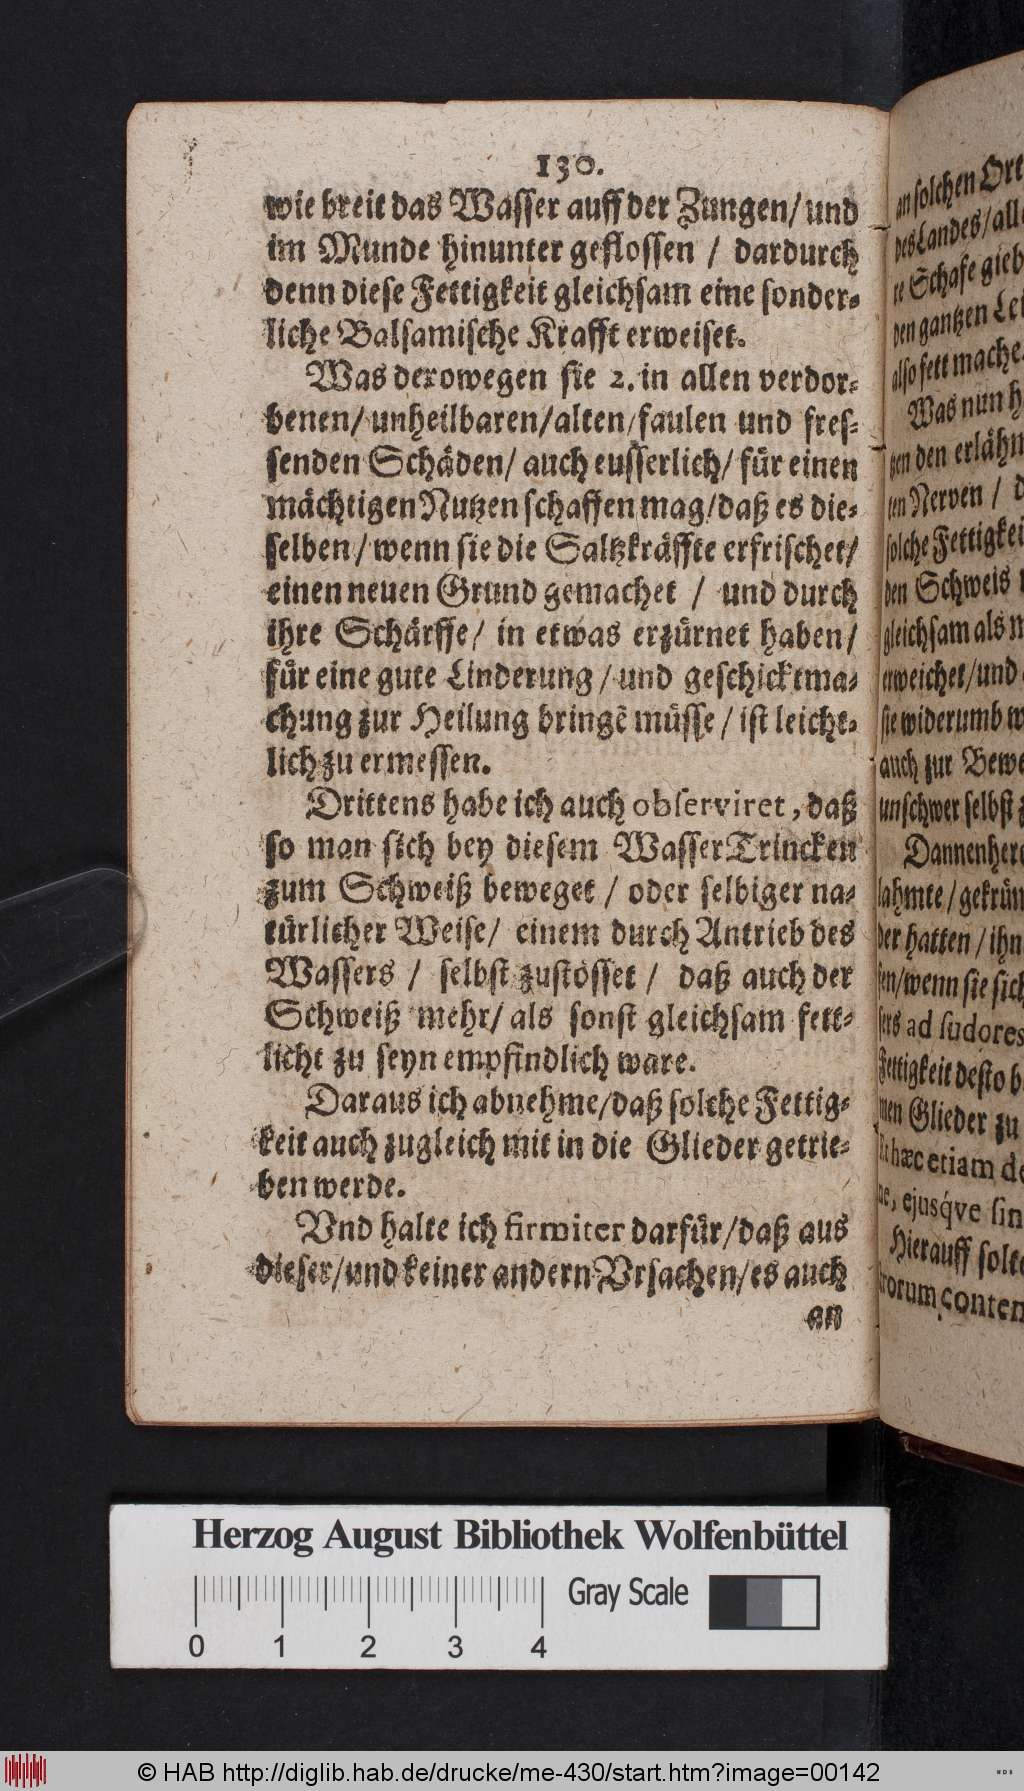 130.
wie breit das Wasser auff der Zungen/ und
im Munde hinunter geflossen / dardurch
denn diese Fettigkeit gleichsam eine sonder-
liche Balsamische Krafft erweiset.
Was derowegen sie 2. in allen verdor-
benen/ unheilbaren/ alten/ faulen und fres-
senden Schäden/ auch eusserlich/ für einen
mächtigen Nutzen schaffen mag/ daß es die-
selben/ wenn sie die Saltzkräffte erfrischet/
einen neuen Grund gemachet / und durch
ihre Schärffe/ in etwas erzürnet haben/
für eine gute Linderung/ und geschicktma-
chung zur Heilung bringẽ müsse/ ist leicht-
lich zu ermessen.
Drittens habe ich auch observiret, daß
so man sich bey diesem Wasser Trincken
zum Schweiß beweget / oder selbiger na-
türlicher Weise/ einem durch Antrieb des
Wassers / selbst zustösset / daß auch der
Schweiß mehr/ als sonst gleichsam fett-
licht zu seyn empfindlich ware.
Daraus ich abnehme/ daß solche Fettig-
keit auch zugleich mit in die Glieder getrie-
ben werde.
Vnd halte ich firmiter darfür/ daß aus
dieser/ und keiner andern Vrsachen/ es auch
an
an solchen Ort
des Landes/ all
te Schafe gieb
den gantzen Lei
also fett mache
Was nun h
den erlähm
ten Nerven / d
solche Fettigkei
den Schweis
gleichsam als
erweichet/ und
sie widerumb
auch zur Bewe
unschwer selbst
Dannenhero
lahmte/ gekrüm
der hatten/ ihn
sen/ wenn sie sich
sers ad sudores
Fettigkeit desto b
men Glieder zu
hæc etiam de
ne, ejusq́ve sin
Hierauff solte
rorum conten
Herzog August Bibliothek Wolfenbüttel
Gray Scale
0 1 2 3 4
© HAB http://diglib.hab.de/drucke/me-430/start.htm?image=00142